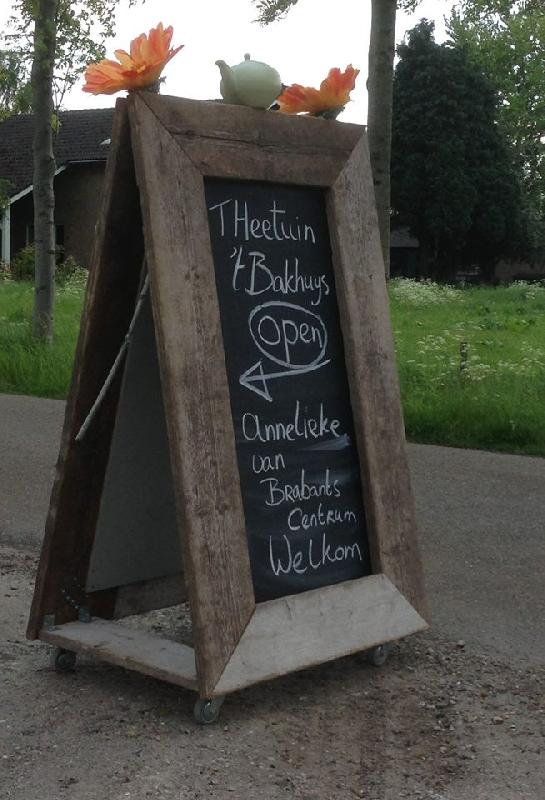 THeetuin
't Bakhuys
Open
annelieke
van
Brabants
Centrum
Welkom